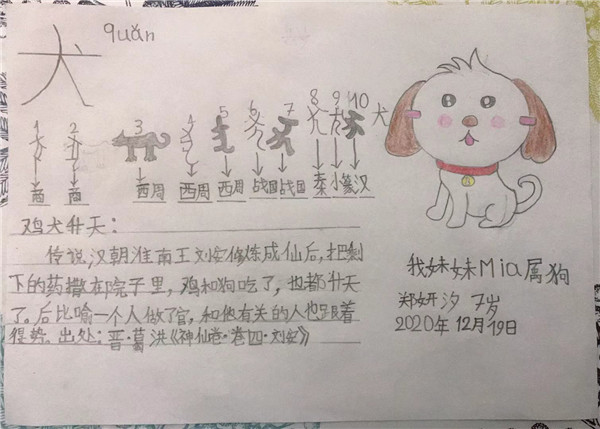 quǎn
犬
1 2 3 4 5 6 7 8 9 10 犬
商 商 西周 西周 西周 战国 战国 秦 小篆 汉
鸡犬升天:
传说,汉朝淮南王刘安修炼成仙后,把剩
下的药撒在院子里,鸡和狗吃了,也都升天
了。后比喻一个人做了官,和他有关的人也跟着
得势.出处:晋·葛洪《神仙卷·卷四·刘安》
我妹妹Mia属狗
郑妍汐 7岁
2020年12月19日